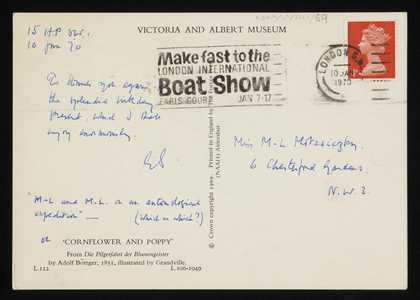 15 HP
10 Jan 70
VICTORIA AND ALBERT MUSEUM
69
Make fast to the
LONDON INTERNATIONAL
Boat Show
EARLS COURT JAN 7-17
LONDON S.W.
10 JAN
1970
To thank you again for
the splendid birthday
present, which I shall
enjoy enormously.
"M-L and M.L. on an entomological
expedition" — (which is which?)
or
'CORNFLOWER AND POPPY'
From Die Pilgerfahrt der Blumengeister
by Adolf Böttger, 1851, illustrated by Grandville.
L.112 L.106-1949
© Crown copyright 1969 Printed in England by
(NAAH) Aldershot
Miss M-L
6 Chesterford Gardens,
N.W.3.